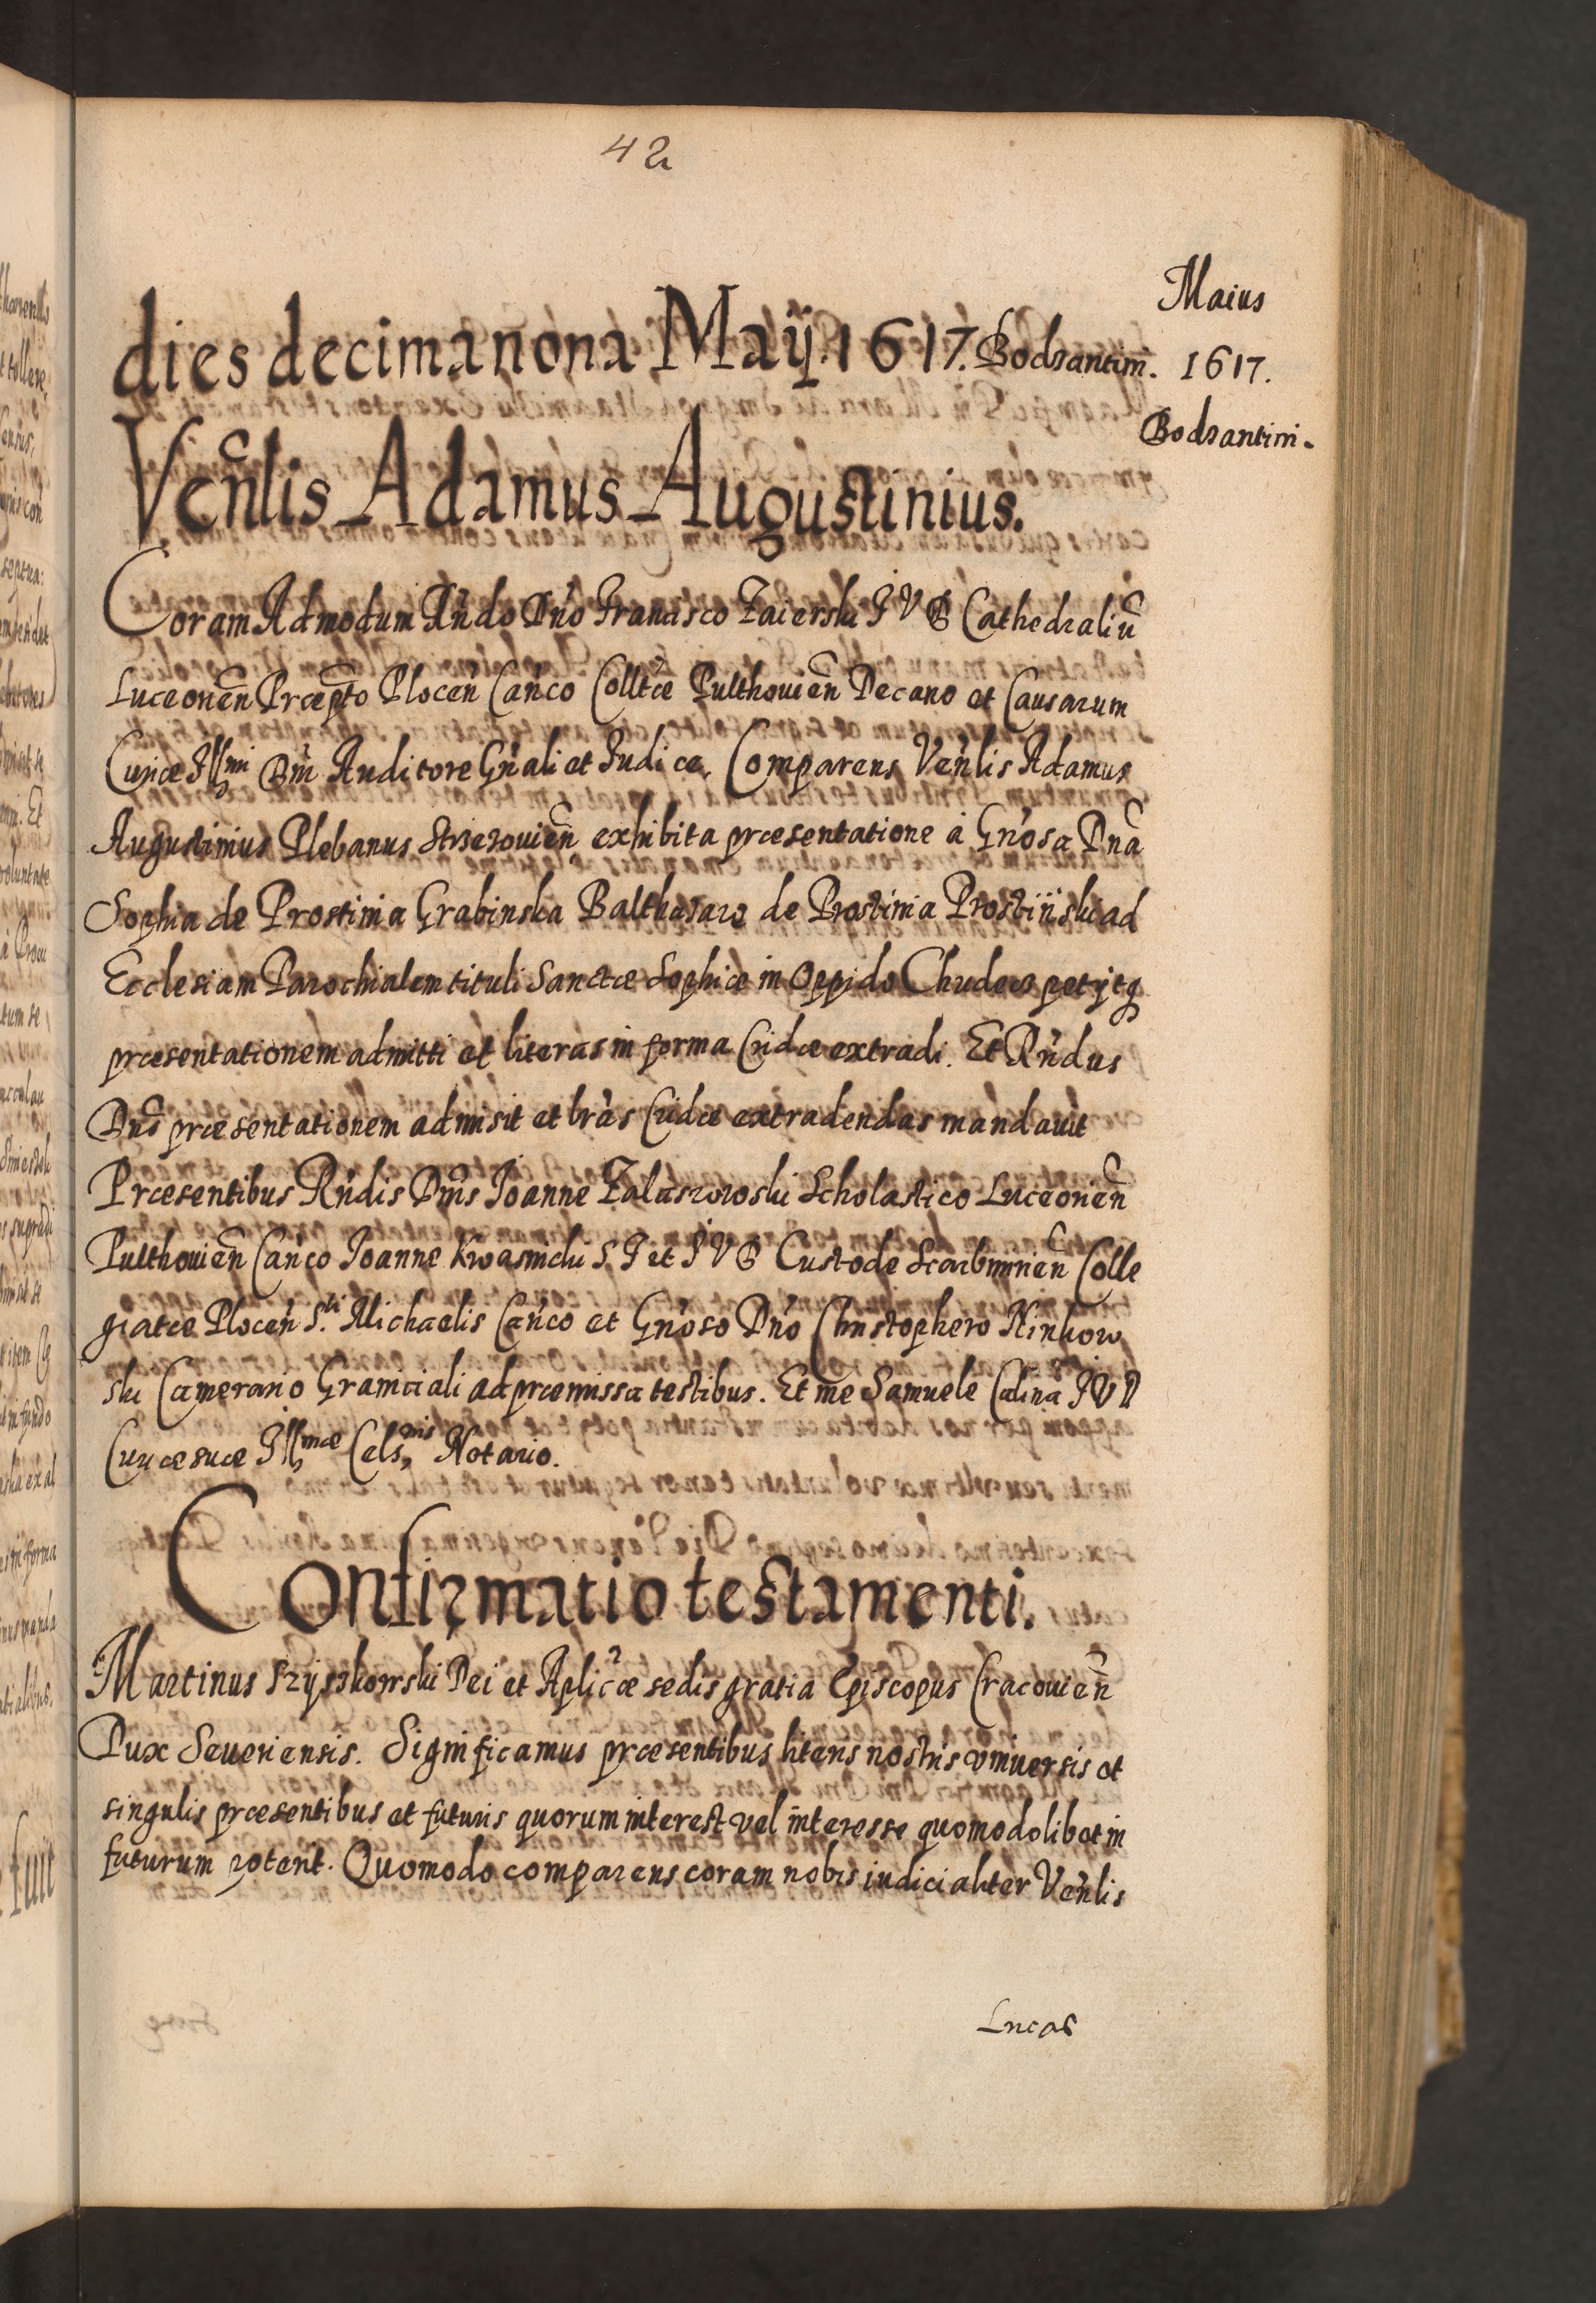 42
Maius
1617.
Bodzantin.
dies decimanona Maÿ. 1617. Bodzantin.
Ven̄lis Adamus Augustinius.
Coram Admodum Rńdo Dńo Francisco Zaierski I V D Cathedraliū
Luceonen̄ Præpt̄o Plocen̄ Cańco Colltæ Pulthouien̄ Decano et Causarum
Curiæ Illmi Dni Auditore Gńali et Iudice, Comparens Veńlis Adamus
Augustinius Plebanus Strzezouien̄ exhibita præsentatione à Gńosa Dn̄a
Sophia de Prostinia Grabinska Balthazaro de Prostinia Prostiński ad
Ecclesiam Parochialem tituli Sanctæ Sophiæ in Oppido Chudecz petÿtq
præsentationem admitti et literas in forma Cridæ extradi. Et Rńdus
Dns̄ præsentationem admisit et lras Cridæ extradendas mandauit
Præsentibus Rńdis Dn̄is Ioanne Zalaszowski Scholastico Luceonien̄
Pulthouien̄ Cańco Ioanne Kwasnicki S. T et I V D Custode Scarbimirien̄ Colle
giatæ Plocen̄ S.ti Michaelis Cańco et Gńoso Dńo Christophero Ninkow
ski Camerario Granciali ad præmissa testibus. Et me Samuele Calina I V D
Curiæ suæ Illmæ Cels,nis Notario.
Confirmatio testamenti.
Martinus Szÿszkowski Dei et Aplicæ sedis gratia Episcopus Cracouien̄
Dux Seueriensis. Significamus præsentibus literis nostris vniuersis et
singulis præsentibus et futuris quorum interest vel interesse quomodolibet in
futurum poterit. Quomodo comparens coram nobis iudicialiter Veńlis
Lucas